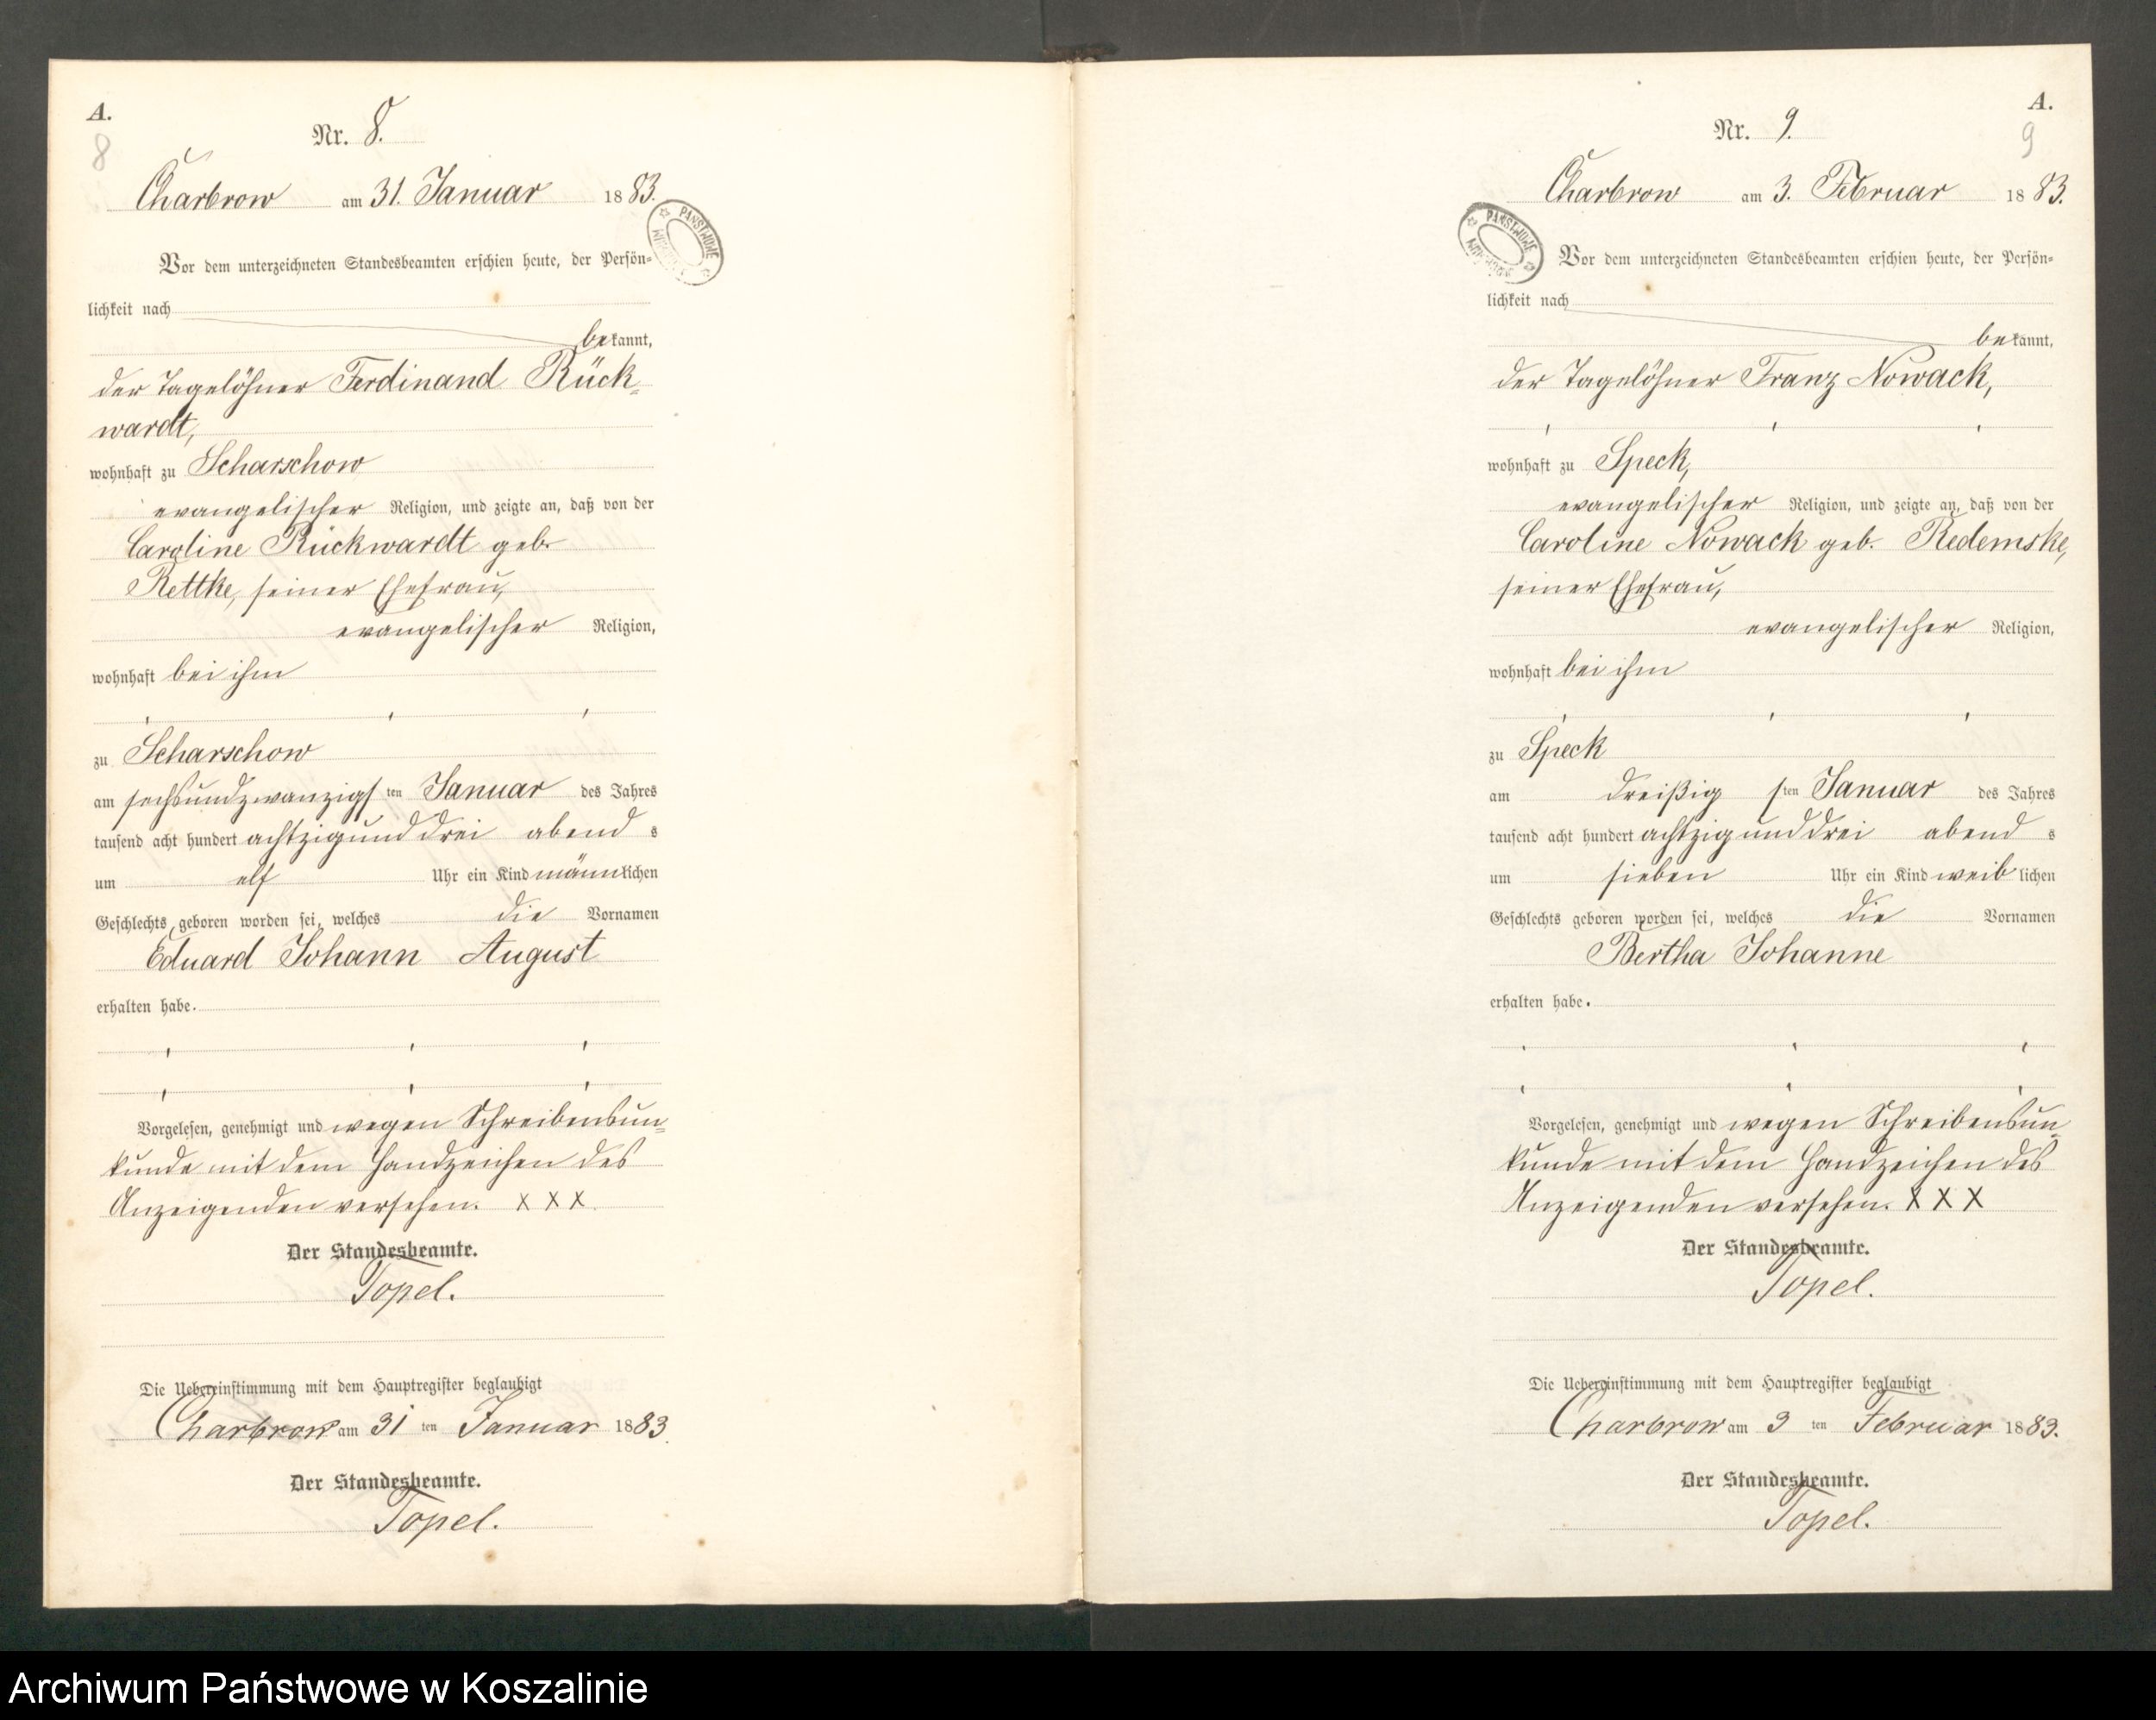 A.
8
Nr. 8.
Charbrow am 31. Januar 1883.
PAŃSTWOWE
Vor dem unterzeichneten Standesbeamten erschien heute, der Persön=
lichkeit nach
bekannt,
der Tagelöhner Ferdinand Rück=
wardt,
wohnhaft zu Scharschow
evangelischer Religion, und zeigte an, daß von der
Caroline Rückwardt geb.
Rettke, seiner Ehefrau,
evangelischer Religion,
wohnhaft bei ihm
zu Scharschow
am sechsundzwanzigsten Januar des Jahres
tausend acht hundert achtzigunddrei abends
um elf Uhr ein Kind männlichen
Geschlechts geboren worden sei, welches die Vornamen
Eduard Johann August
erhalten habe.
Vorgelesen, genehmigt und wegen Schreibensun=
kunde mit dem Handzeichen des
Anzeigenden versehen. X X X
Der Standesbeamte.
Topel.
Die Uebereinstimmung mit dem Hauptregister beglaubigt
Charbrow am 31 ten Januar 1883.
Der Standesbeamte.
Topel.
A.
9
Nr. 9.
Charbrow am 3. Februar 1883.
PAŃSTWOWE
Vor dem unterzeichneten Standesbeamten erschien heute, der Persön=
lichkeit nach
bekannt,
der Tagelöhner Franz Nowack,
wohnhaft zu Speck,
evangelischer Religion, und zeigte an, daß von der
Caroline Nowack geb. Redemske,
seiner Ehefrau,
evangelischer Religion,
wohnhaft bei ihm
zu Speck
am dreißigsten Januar des Jahres
tausend acht hundert achtzigunddrei abends
um sieben Uhr ein Kind weiblichen
Geschlechts geboren worden sei, welches die Vornamen
Bertha Johanne
erhalten habe.
Vorgelesen, genehmigt und wegen Schreibensun=
kunde mit dem Handzeichen des
Anzeigenden versehen. X X X
Der Standesbeamte.
Topel.
Die Uebereinstimmung mit dem Hauptregister beglaubigt
Charbrow am 3 ten Februar 1883.
Der Standesbeamte.
Topel.
Archiwum Państwowe w Koszalinie